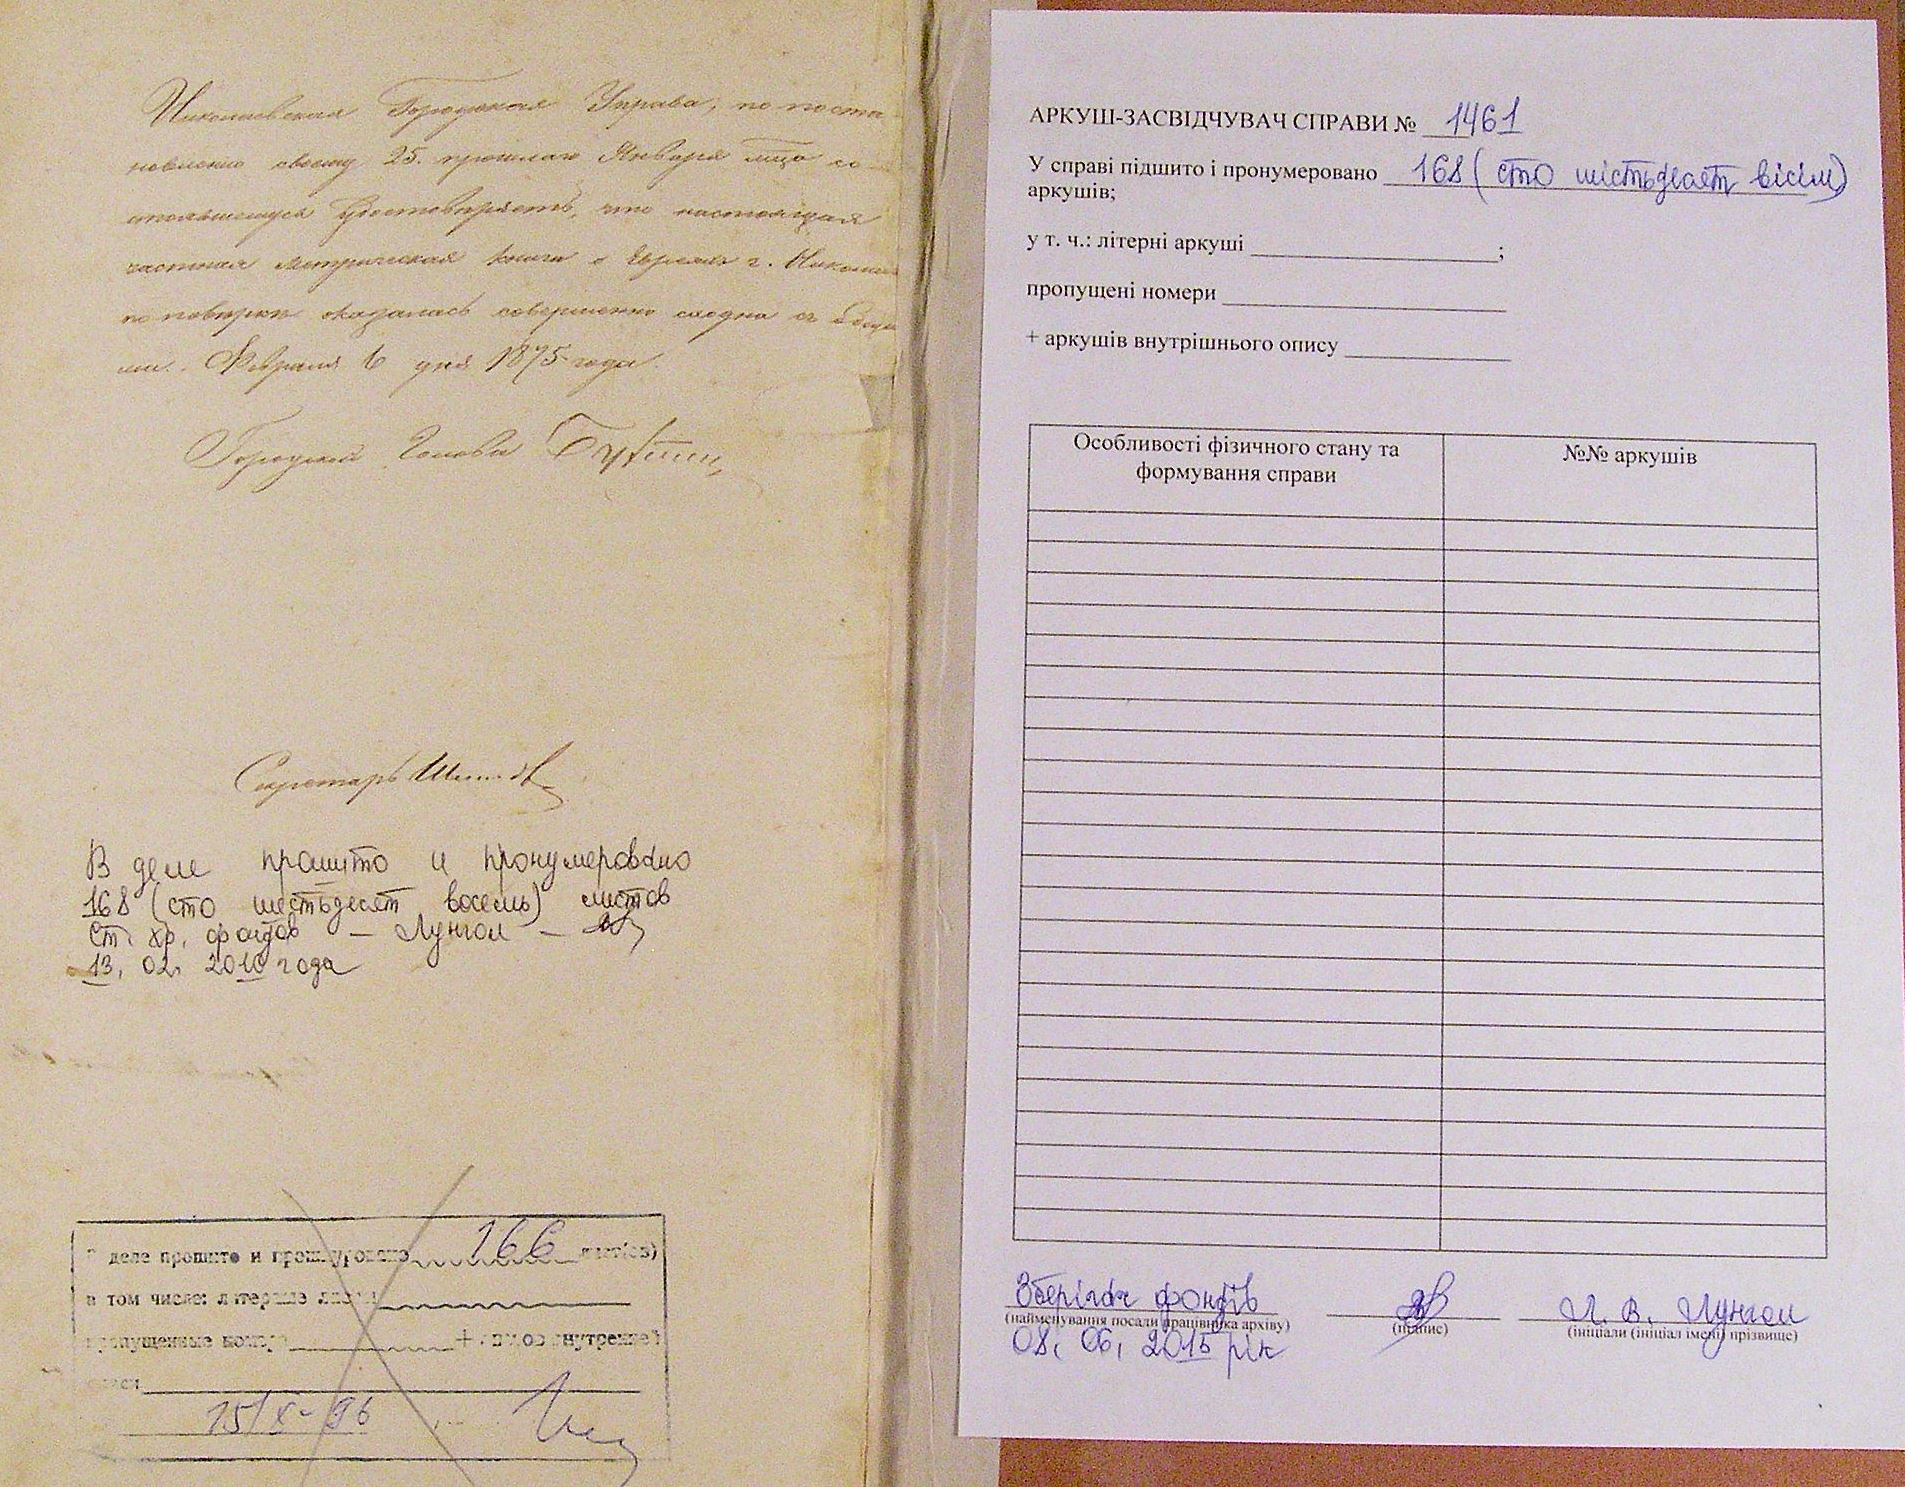 Николаевская Городская Управа, по поста
новлению своему 25. прошлаго Января мца со
стоявшемуся удостоверяетъ, что настоящая
частная метрическая книга о Евреяхъ г. Никола
по поверке оказалась совершенно сходна съ
Февраля 6 дня 1875 года.
Городской Голова
Секретарь
В деле прошито и пронумеровано
168 (сто шестьдесят восемь) листов
Ст. хр. фондов — Лунгол —
13. 02. 2010 года
деле прошито и 166
в том числе: литерные
пропущенные +
15/X-96
АРКУШ-ЗАСВІДЧУВАЧ СПРАВИ № 1461
У справі підшито і пронумеровано 168 (сто шістьдесят вісім)
аркушів;
у т. ч.: літерні аркуші ;
пропущені номери
+ аркушів внутрішнього опису
Особливості фізичного стану та
формування справи
№№ аркушів
Зберігач фондів Л. В. Лунгол
(найменування посади працівника архіву) (підпис) (ініціали (ініціал імені) прізвище)
08. 06. 2015 рік